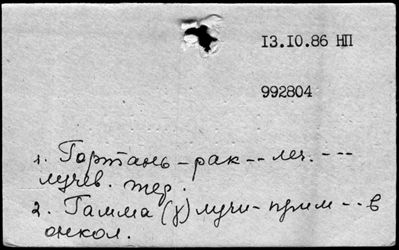 13.10.86 НП
992804
1. Гортань - рак -- леч. ---
лучев. тер.
2. Гамма (γ) лучи - прим -- в
онкол.